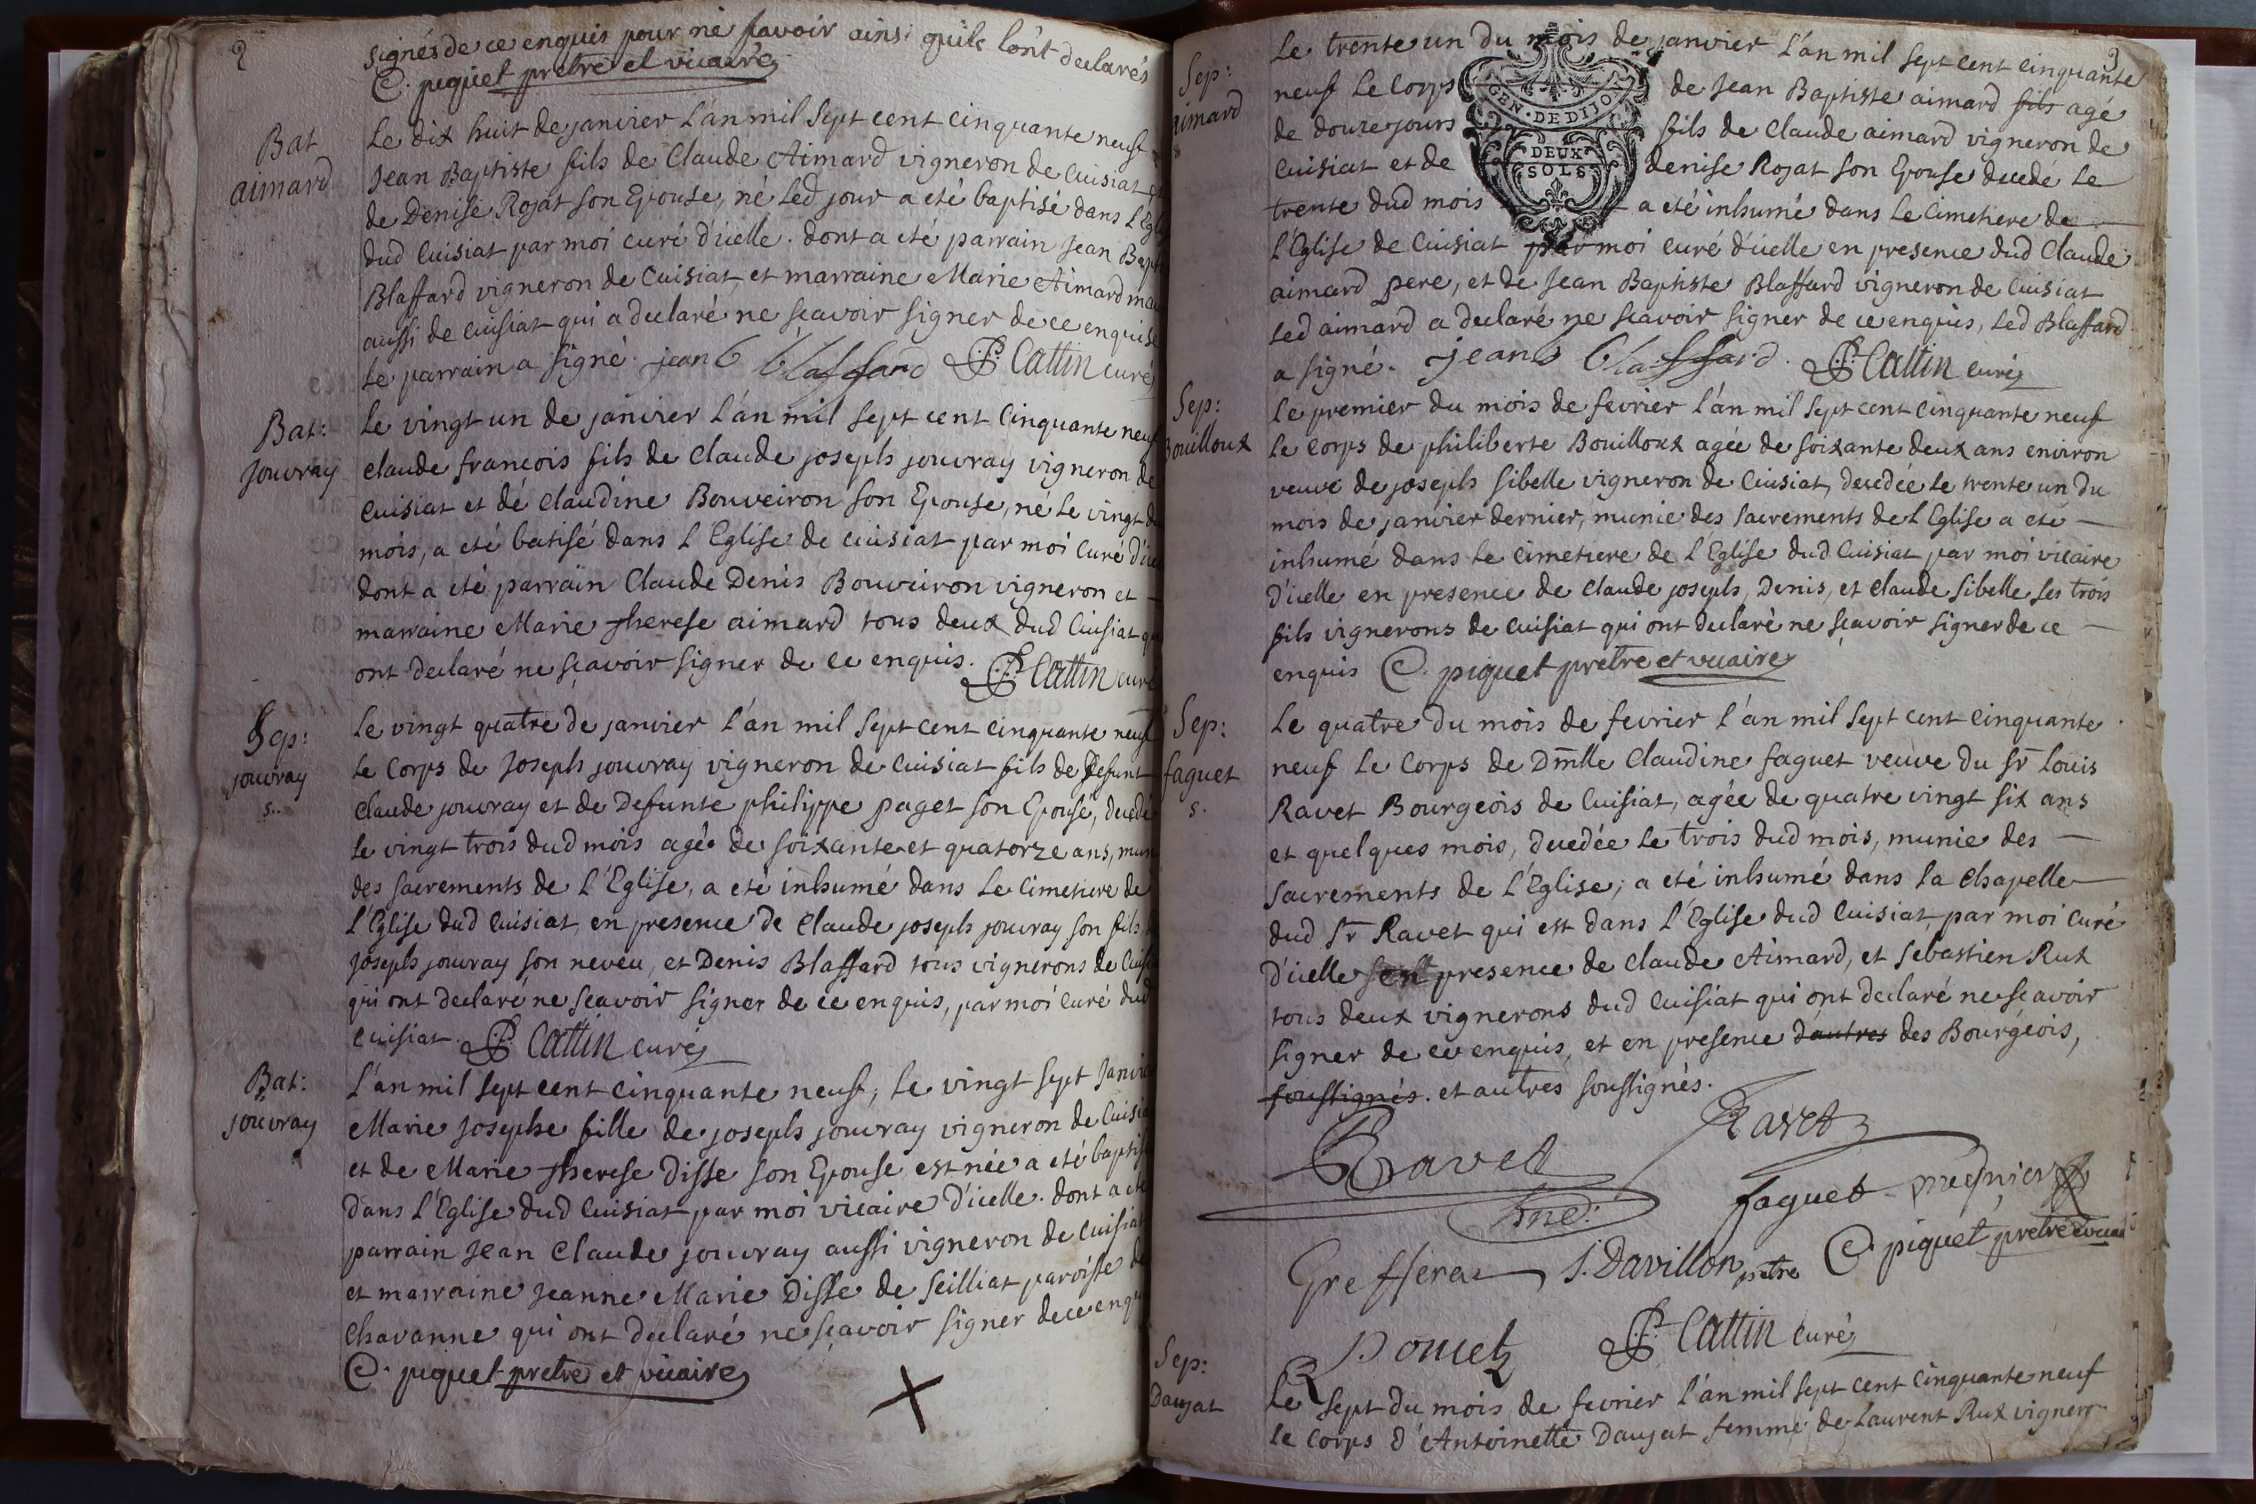 2
signés de ce enquis pour ne savoir ainsi quils lont declarés
C. piquet pretre et vicaire
Bat
aimard
Le dix huit de janvier L'an mil sept cent cinquante neuf
Jean Baptiste fils de Claude Aimard vigneron de Cuisiat et
de Denise Rojat son Epouse, né led jour a eté baptisé dans L'Egl
dud Cuisiat par moi curé d'icelle. dont a eté parrain Jean Bapt
Blaffard vigneron de Cuisiat et marraine Marie Aimard
aussi de cuisiat qui a declaré ne sçavoir signer de ce enquise
Le parrain a signé. jean b blaffard Cattin curé
Bat:
jouvray
Le vingt un de janvier L'an mil sept cent cinquante neuf
claude francois fils de claude joseph jouvray vigneron de
Cuisiat et dé claudine Bouveiron son Epouse, né le vingt d
mois, a eté batisé dans L'Eglise de cuisiat par moi Curé d'ice
dont a eté parrain Claude Denis Bouveiron vigneron et
marraine Marie therese aimard tous deux dud Cuisiat qu
ont declaré ne sçavoir signer de ce enquis. Cattin curé
Sep:
jouvray
s..
Le vingt quatre de janvier L'an mil sept cent cinquante neuf
Le Corps de Joseph jouvray vigneron de Cuisiat fils de Defunt
Claude jouvray et de Defunte philippe paget son Epouse, decedé
le vingt trois dud mois agé de soixante et quatorze ans, mun
des sacrements de L'Eglise, a eté inhumé dans Le Cimetiere de
L'Eglise dud Cuisiat, en presence de Claude joseph jouvray son fils
joseph jouvray son neveu, et Denis Blaffard tous vignerons de Cuis
qui ont declaré ne sçavoir signer de ce enquis, par moi curé dud
cuisiat. Cattin curé
Bat:
jouvray
L'an mil sept cent cinquante neuf, Le vingt sept janvie
Marie josephe fille de joseph jouvray vigneron de Cuisia
et de Marie therese Disse son Epouse est née a eté baptis
dans L'Eglise dud Cuisiat par moi vicaire D'icelle. dont a eté
parrain Jean Claude jouvray aussi vigneron de Cuisiat
et marraine Jeanne Marie Disse de Seilliat paroisse d
Chavanne qui ont declaré ne sçavoir signer de ce enqu
C. piquet pretre et vicaire
3
Sep:
aimard
s
Le trente un du mois de janvier L'an mil sept cent cinquante
neuf Le Corps de Jean Baptiste aimard fils agé
de douze jours fils de Claude aimard vigneron de
Cuisiat et de denise Rojat son Epouse decedé Le
trente dud mois a eté inhumé dans Le Cimetiere de
L'Eglise de Cuisiat par moi curé d'icelle en presence dud Claude
aimard pere, et de Jean Baptiste Blaffard vigneron de Cuisiat
Led aimard a declaré ne sçavoir signer de ce enquis, Led Blaffard
a signé. jean b blaffard. Cattin curé
GEN. DE DIJON
DEUX
SOLS
Sep:
Bouilloux
Le premier du mois de fevrier L'an mil sept cent cinquante neuf
Le Corps de philiberte Bouilloux agée de soixante deux ans environ
veuve de joseph sibelle vigneron de Cuisiat, decedée le trente un du
mois de janvier dernier, munie des sacrements de L'Eglise a eté
inhumé dans le cimetiere de L'Eglise dud Cuisiat par moi vicaire
d'icelle en presence de claude joseph, Denis, et claude sibelle ses trois
fils vignerons de Cuisiat qui ont declaré ne sçavoir signer de ce
enquis C. piquet pretre et vicaire
Sep:
faguet
s.
Le quatre du mois de fevrier L'an mil sept cent cinquante
neuf Le Corps de Dmlle Claudine faguet veuve du Sr Louis
Ravet Bourgeois de Cuisiat, agée de quatre vingt six ans
et quelques mois, decedée le trois dud mois, munie des
sacrements de L'Eglise, a eté inhumé dans la chapelle
dud Sr Ravet qui est dans L'Eglise dud Cuisiat, par moi Curé
D'icelle en presence de claude Aimard, et sebastien Rux
tous deux vignerons dud Cuisiat qui ont declaré ne sçavoir
signer de ce enquis, et en presence d'autres des Bourgeois,
soussignés. et autres soussignés.
Ravet
Ravet
faguet
Greffera J. Davillon ptre C. piquet pretre et vicaire
Cattin curé
Sep:
Daujat
Le sept du mois de fevrier L'an mil sept cent cinquante neuf
Le Corps d'Antoinette Daujat femme de Laurent Rux vigneron